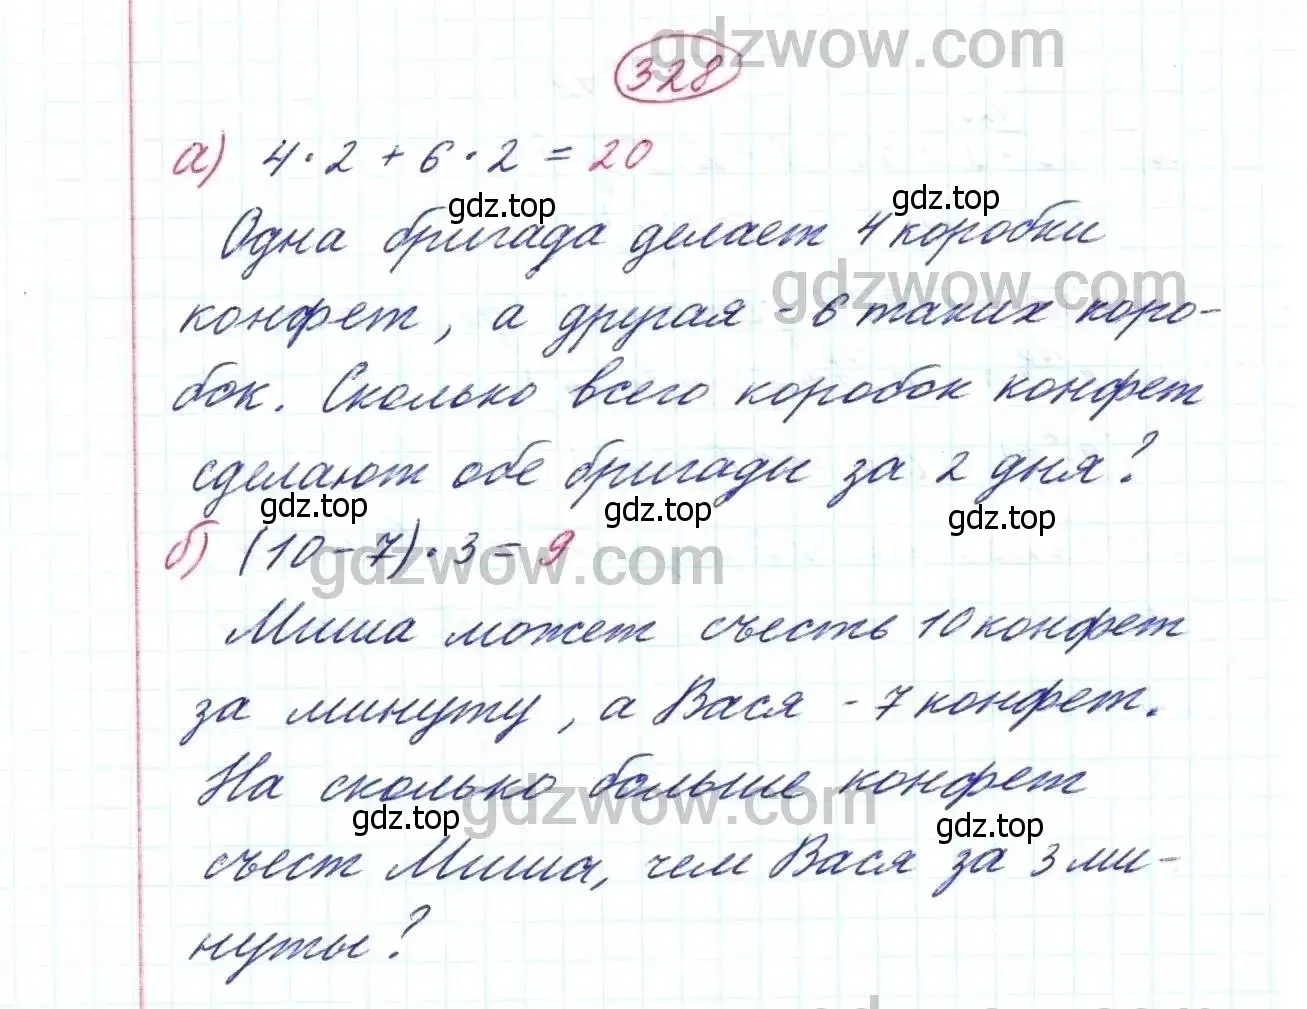 gdzwow.com
328
а) 4·2 + 6·2 = 20
gdz.top
gdz.top
Одна бригада делает 4 коробки
gdzwow.com
конфет, а другая - 6 таких коро-
бок. Сколько всего коробок конфет
сделают обе бригады за 2 дня?
gdz.top
gdz.top
gdz.top
б) (10 - 7)·3 = 9
gdzwow.com
Миша может съесть 10 конфет
за минуту, а Вася - 7 конфет.
На сколько больше конфет
gdzwow.com
gdz.top
gdz.top
съест Миша, чем Вася за 3 ми-
нуты?